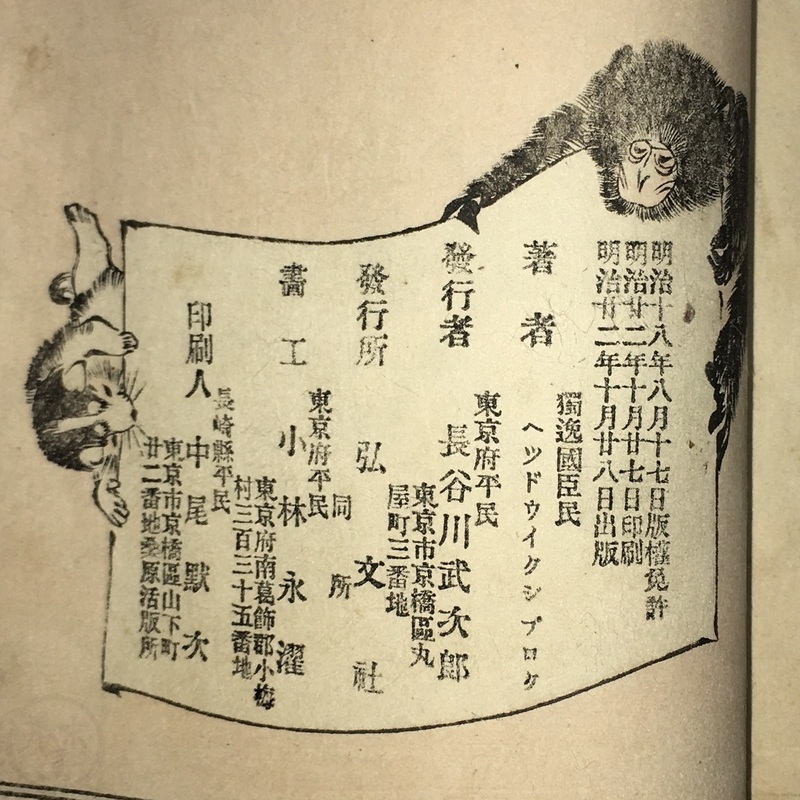 明治十八年八月十七日版權免許
明治廿二年十月廿七日印刷
明治廿二年十月廿八日出版
獨逸國臣民
著者 ヘツドウイクシプロケ
東京府平民
發行者 長谷川武次郎
東京市京橋區丸
屋町三番地
發行所 弘文社
同所
東京府平民
畵工 小林永濯
東京府南葛飾郡小梅
村三百三十五番地
長崎縣平民
印刷人 中尾默次
東京市京橋區山下町
廿二番地桑原活版所